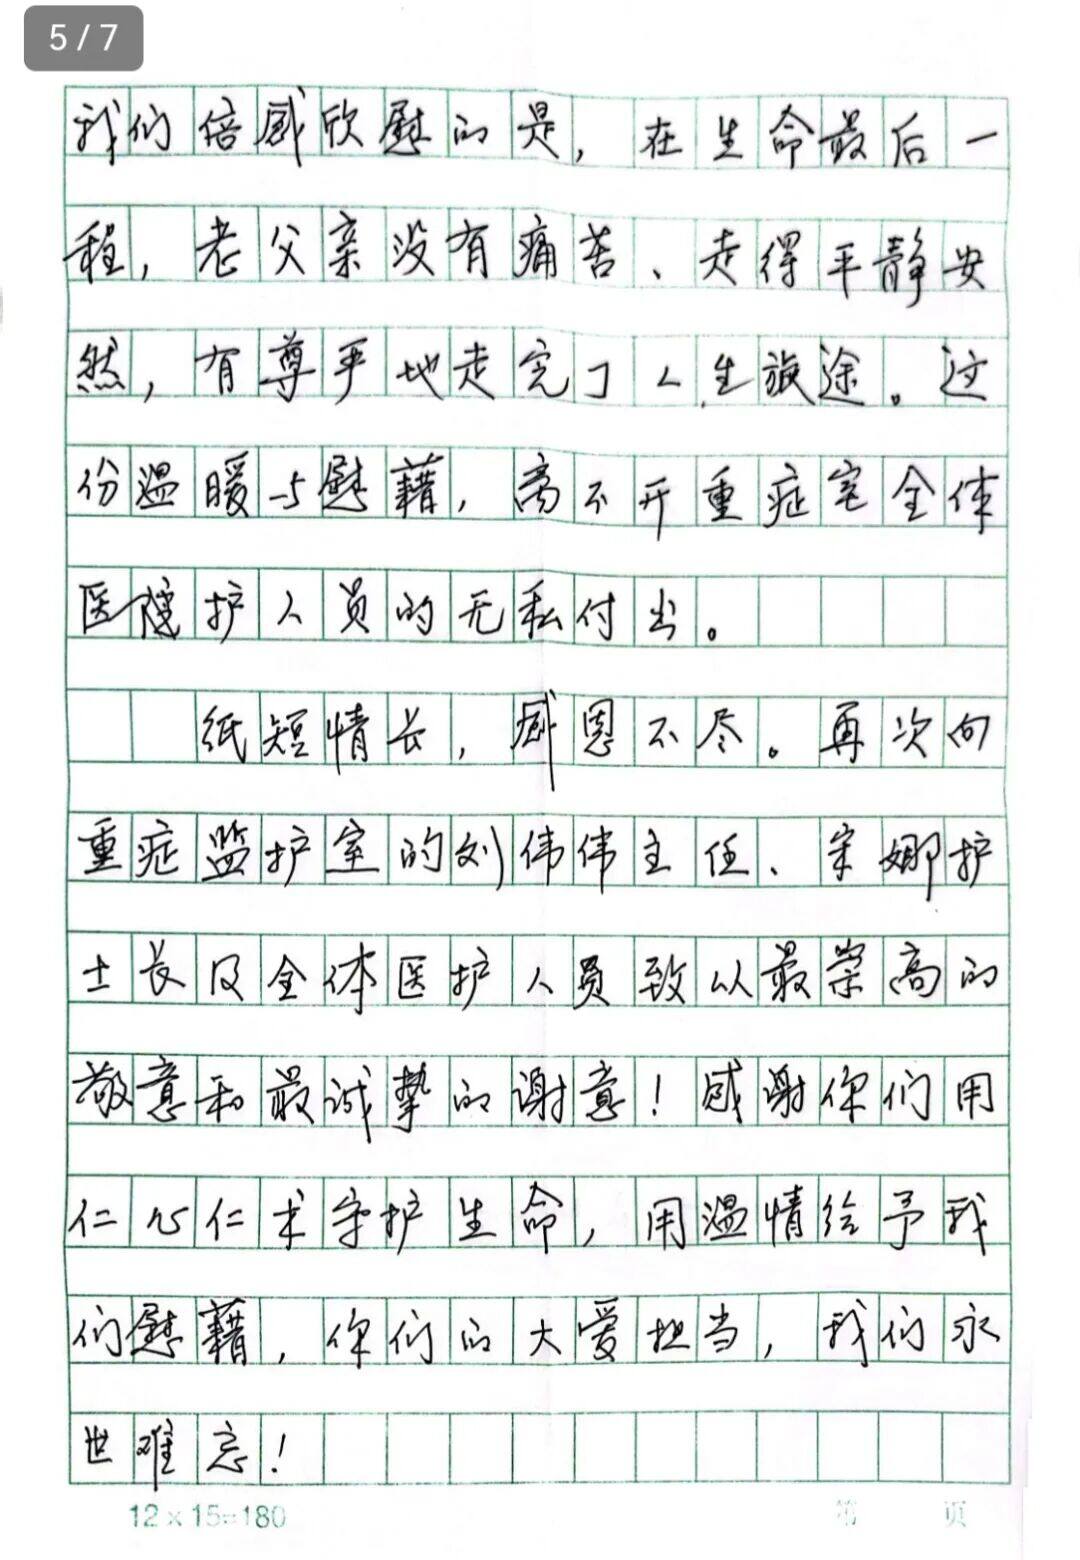 5 / 7
我们倍感欣慰的是，在生命最后一
程，老父亲没有痛苦、走得平静安
然，有尊严地走完了人生旅途。这
份温暖与慰藉，离不开重症室全体
医院护人员的无私付出。
纸短情长，感恩不尽。再次向
重症监护室的刘伟伟主任、宋娜护
士长及全体医护人员致以最崇高的
敬意和最诚挚的谢意！感谢你们用
仁心仁术守护生命，用温情给予我
们慰藉，你们的大爱担当，我们永
世难忘！
12×15=180 第 页